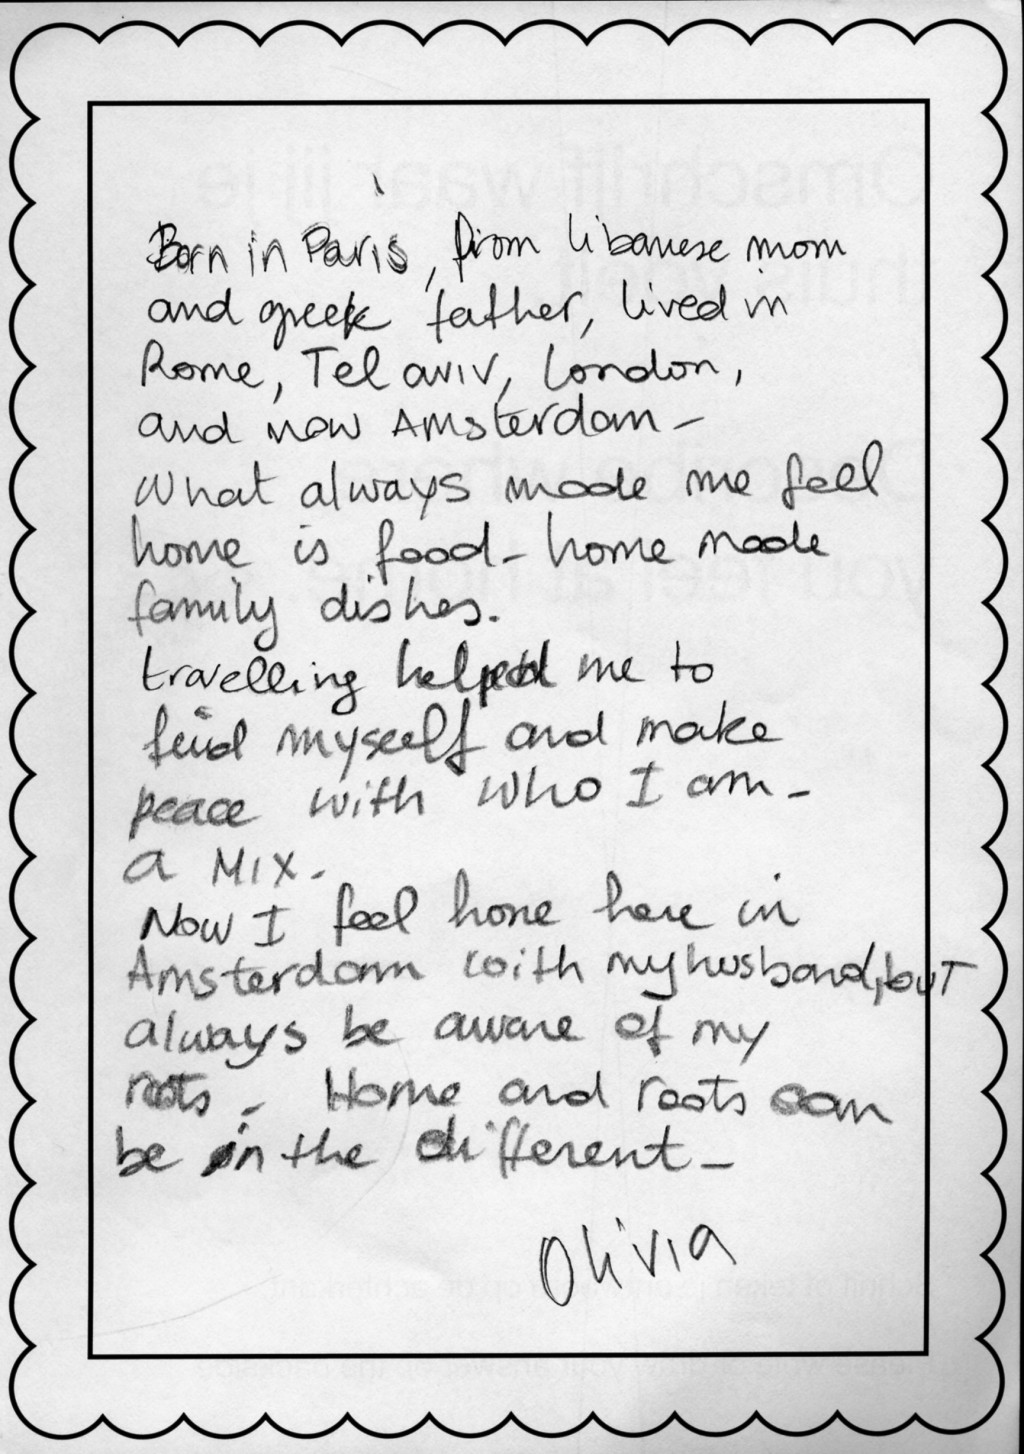 Born in Paris, from libanese mom
and greek father, lived in
Rome, Tel aviv, London,
and now Amsterdam -
What always made me feel
home is food - home made
family dishes.
travelling helped me to
find myself and make
peace with who I am -
a MIX -
Now I feel home here in
Amsterdam with my husband, but
always be aware of my
roots - Home and roots can
be in the different -
Olivia